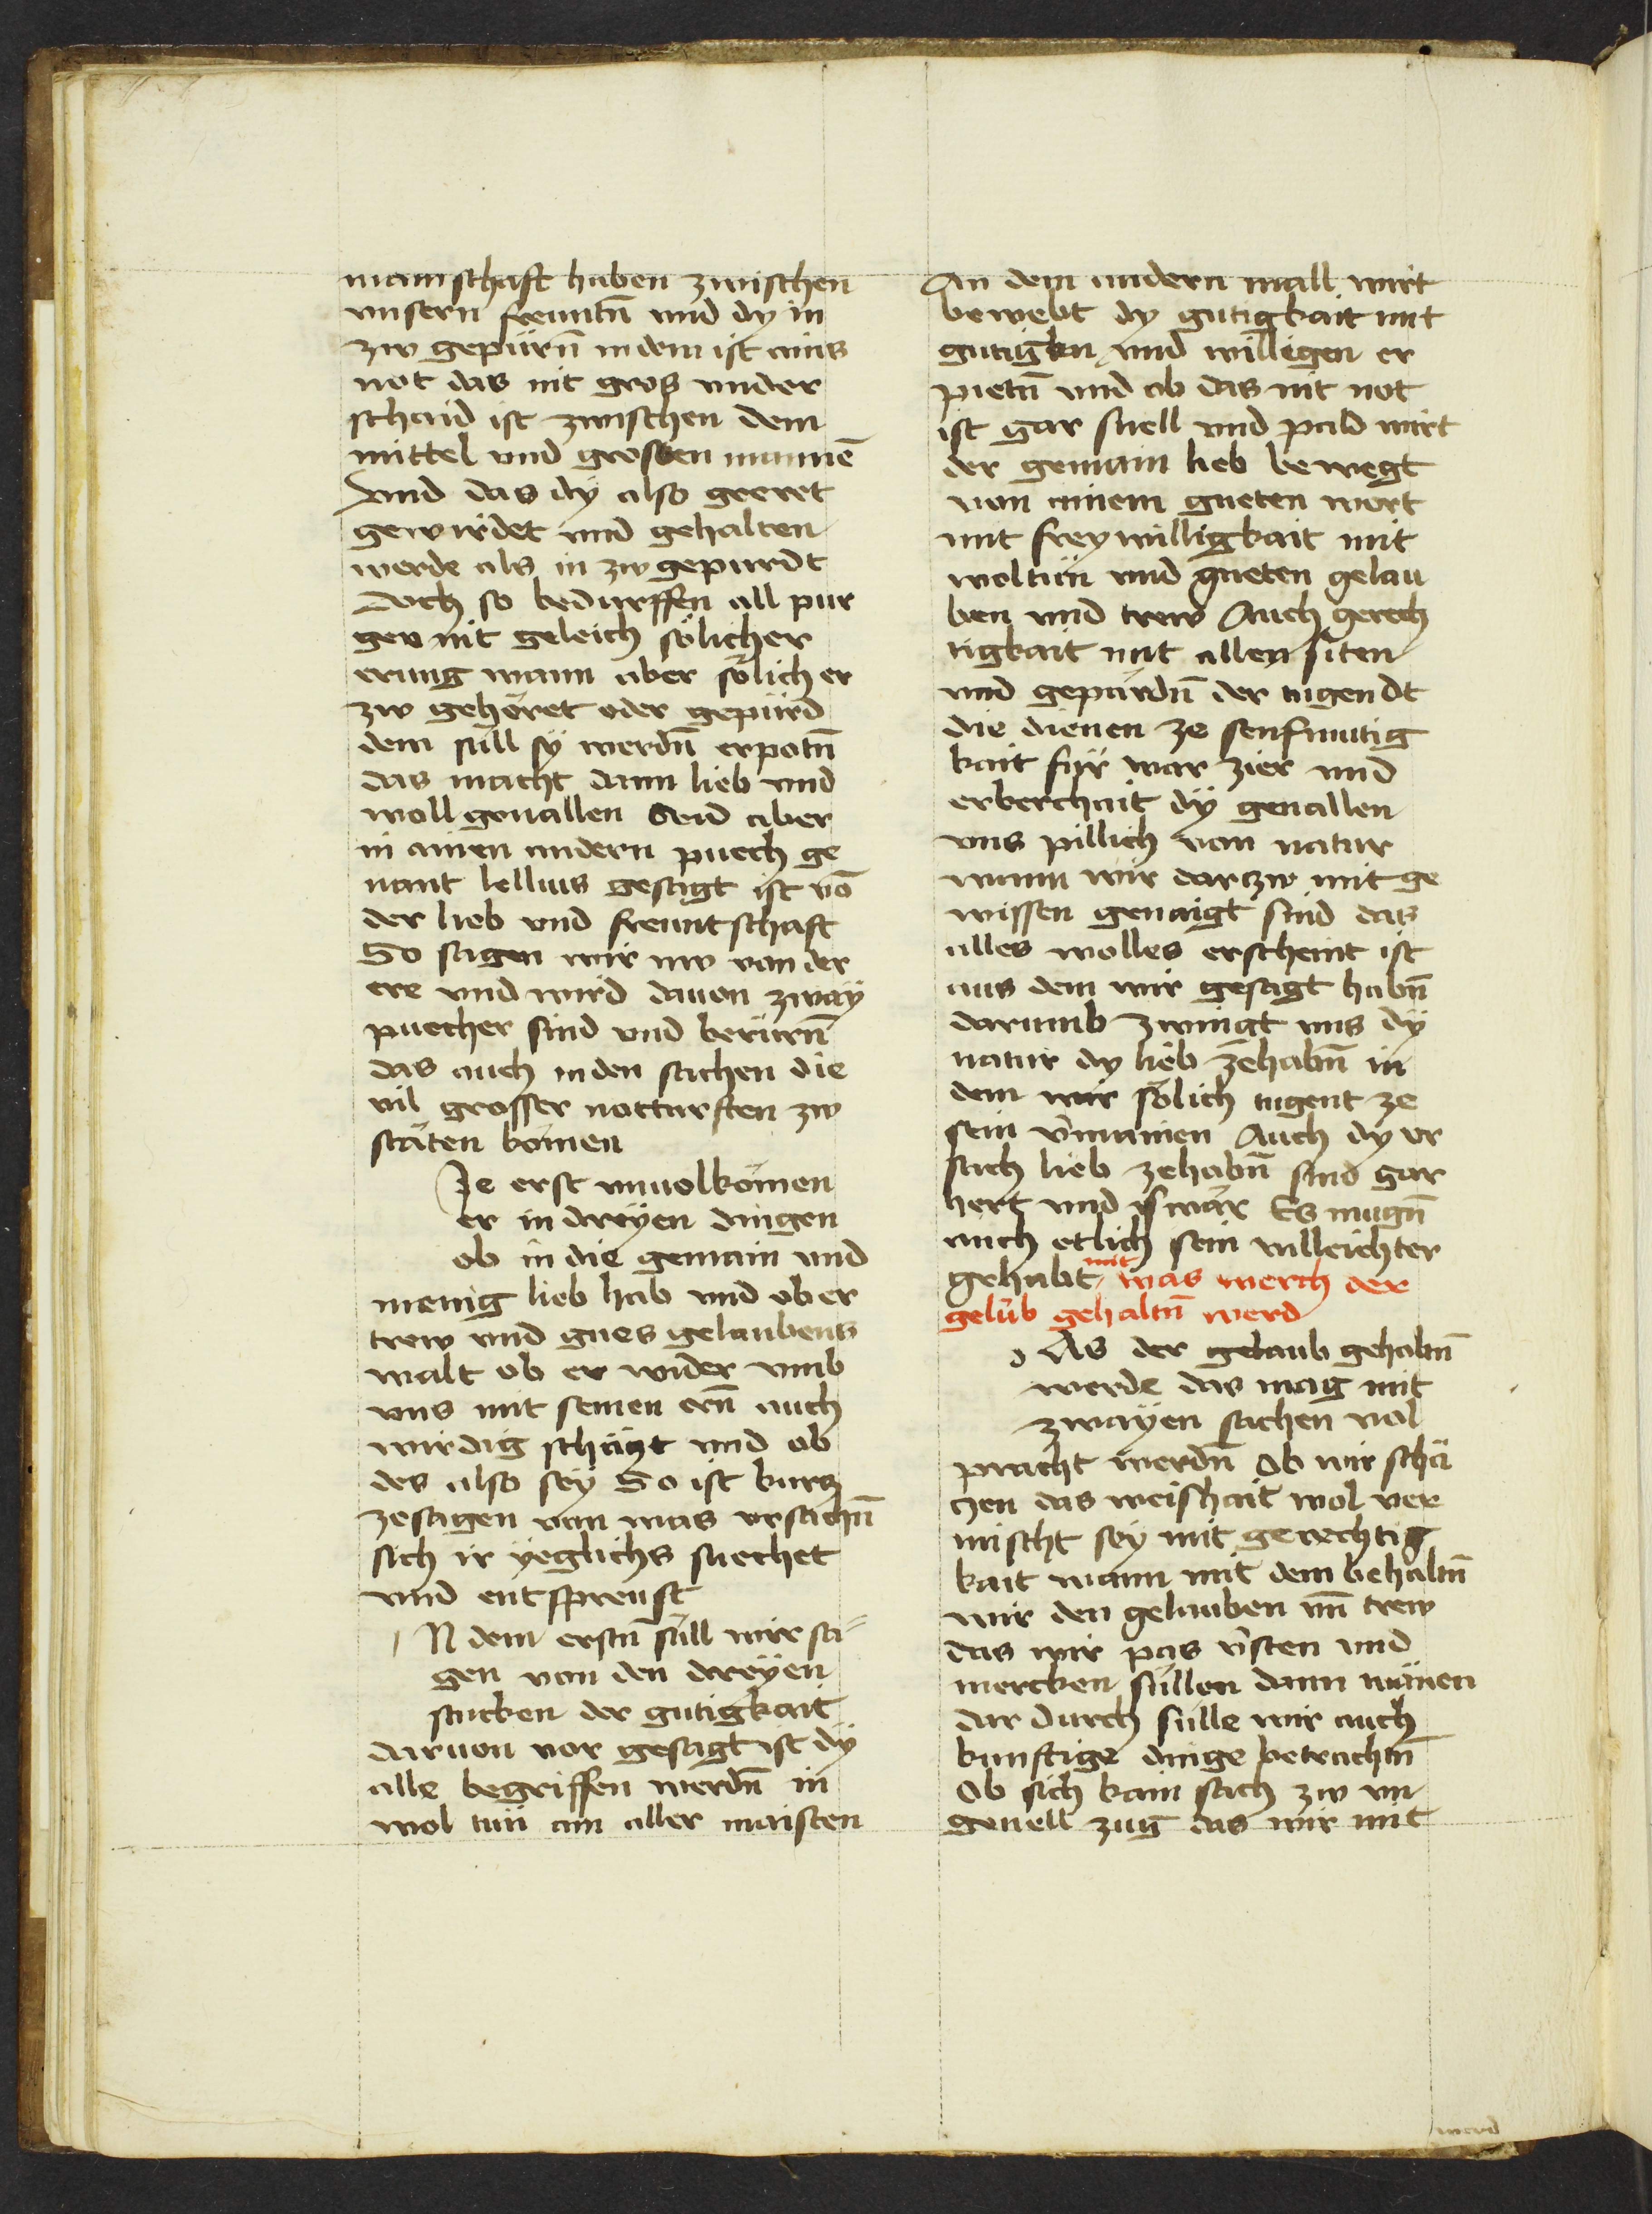 mainschaft haben zwischen
vnsern freuntn̄ vnd dy in
zw gepürn̄ in dem ist ains
not das nit gros vnder
schaid ist zwischen dem
mittel vnd grossen mannē
Vnd das dy also geeret
gewirdet vnd gehalten
werde als in zw gepurdt
Doch so bedurffen all pur
gen nit geleich sölicher
erung wann aber sölich er
zw gehöret oder gepürd
dem süll sy werdn̄ erpotn̄
das macht dann lieb vnd
woll geuallen Seid aber
in ainen andern puech ge
nant lellius gesagt ist vō
der lieb vnd freuntschaft
So sagen wir nw von der
ere vnd wird dauon zway
puecher sind vnd berürn̄
das auch in den sachen die
vil grosser notturften zw
stäten kömen
Je erst vnuolkömen
er in dreyen dingen
ob in die gemain vnd
menig lieb hab vnd ob er
trew vnd gues gelaubens
walt ob er wider vmb
vns mit seinen ern̄ auch
wirdig schäczt vnd ob
des also sey So ist kurcz
zesagen von was vrsachn̄
sich ir yeglichs suechet
vnd entspreust
N dem erstn̄ süll wir sa
gen von den dreyen
stucken der gutigkait
daruon vor gesagt ist dy
alle begriffen werdn̄ in
wol tün am aller maisten
An dem andern mall wirt
bewebt dy gutigkait mit
gutigkn̄ vnd willigen er
pietn̄ vnd ob das nit not
ist gar snell vnd pald wirt
der gemain lieb bewegt
von ainem gueten wort
mit freywilligkait mit
woltün vnd gueten gelau
ben vnd trew Auch gerech
tigkait mit allen siten
vnd gepärdn̄ der tugendt
die dienen ze senfmutig
kait für war zier vnd
erberchait dy geuallen
vns pillich von natur
wann wir darzw mit ge
wissen genaigt sind das
alles wolles erscheint ist
aus dem wir gesagt habn̄
darumb zwingt vns dy
natur dy lieb zehabn̄ in
dem wir sölich tugent ze
sein v̄mainen Auch dy vr
sach lieb zehabn̄ sind gar
hert vnd swär Es mugn̄
auch etlich sein villeichter
gehabt mit was werch der
gelub gehaltn̄ werd
As der gelaub gehaltn̄
werde das mag mit
zwayen sachen vol
pracht werdn̄ Ob wir schä
czen das weishait wol ver
mischt sey mit gerechtig
kait wann mit dem behaltn̄
wir den gelauben vn̄ trew
das wir pas v̄sten vnd
mercken süllen dann mänen
dar durch sülle wir auch
kunftige dinge betrachtn̄
Ob sich kain sach zw vn
geuell zug das wir mit
werd